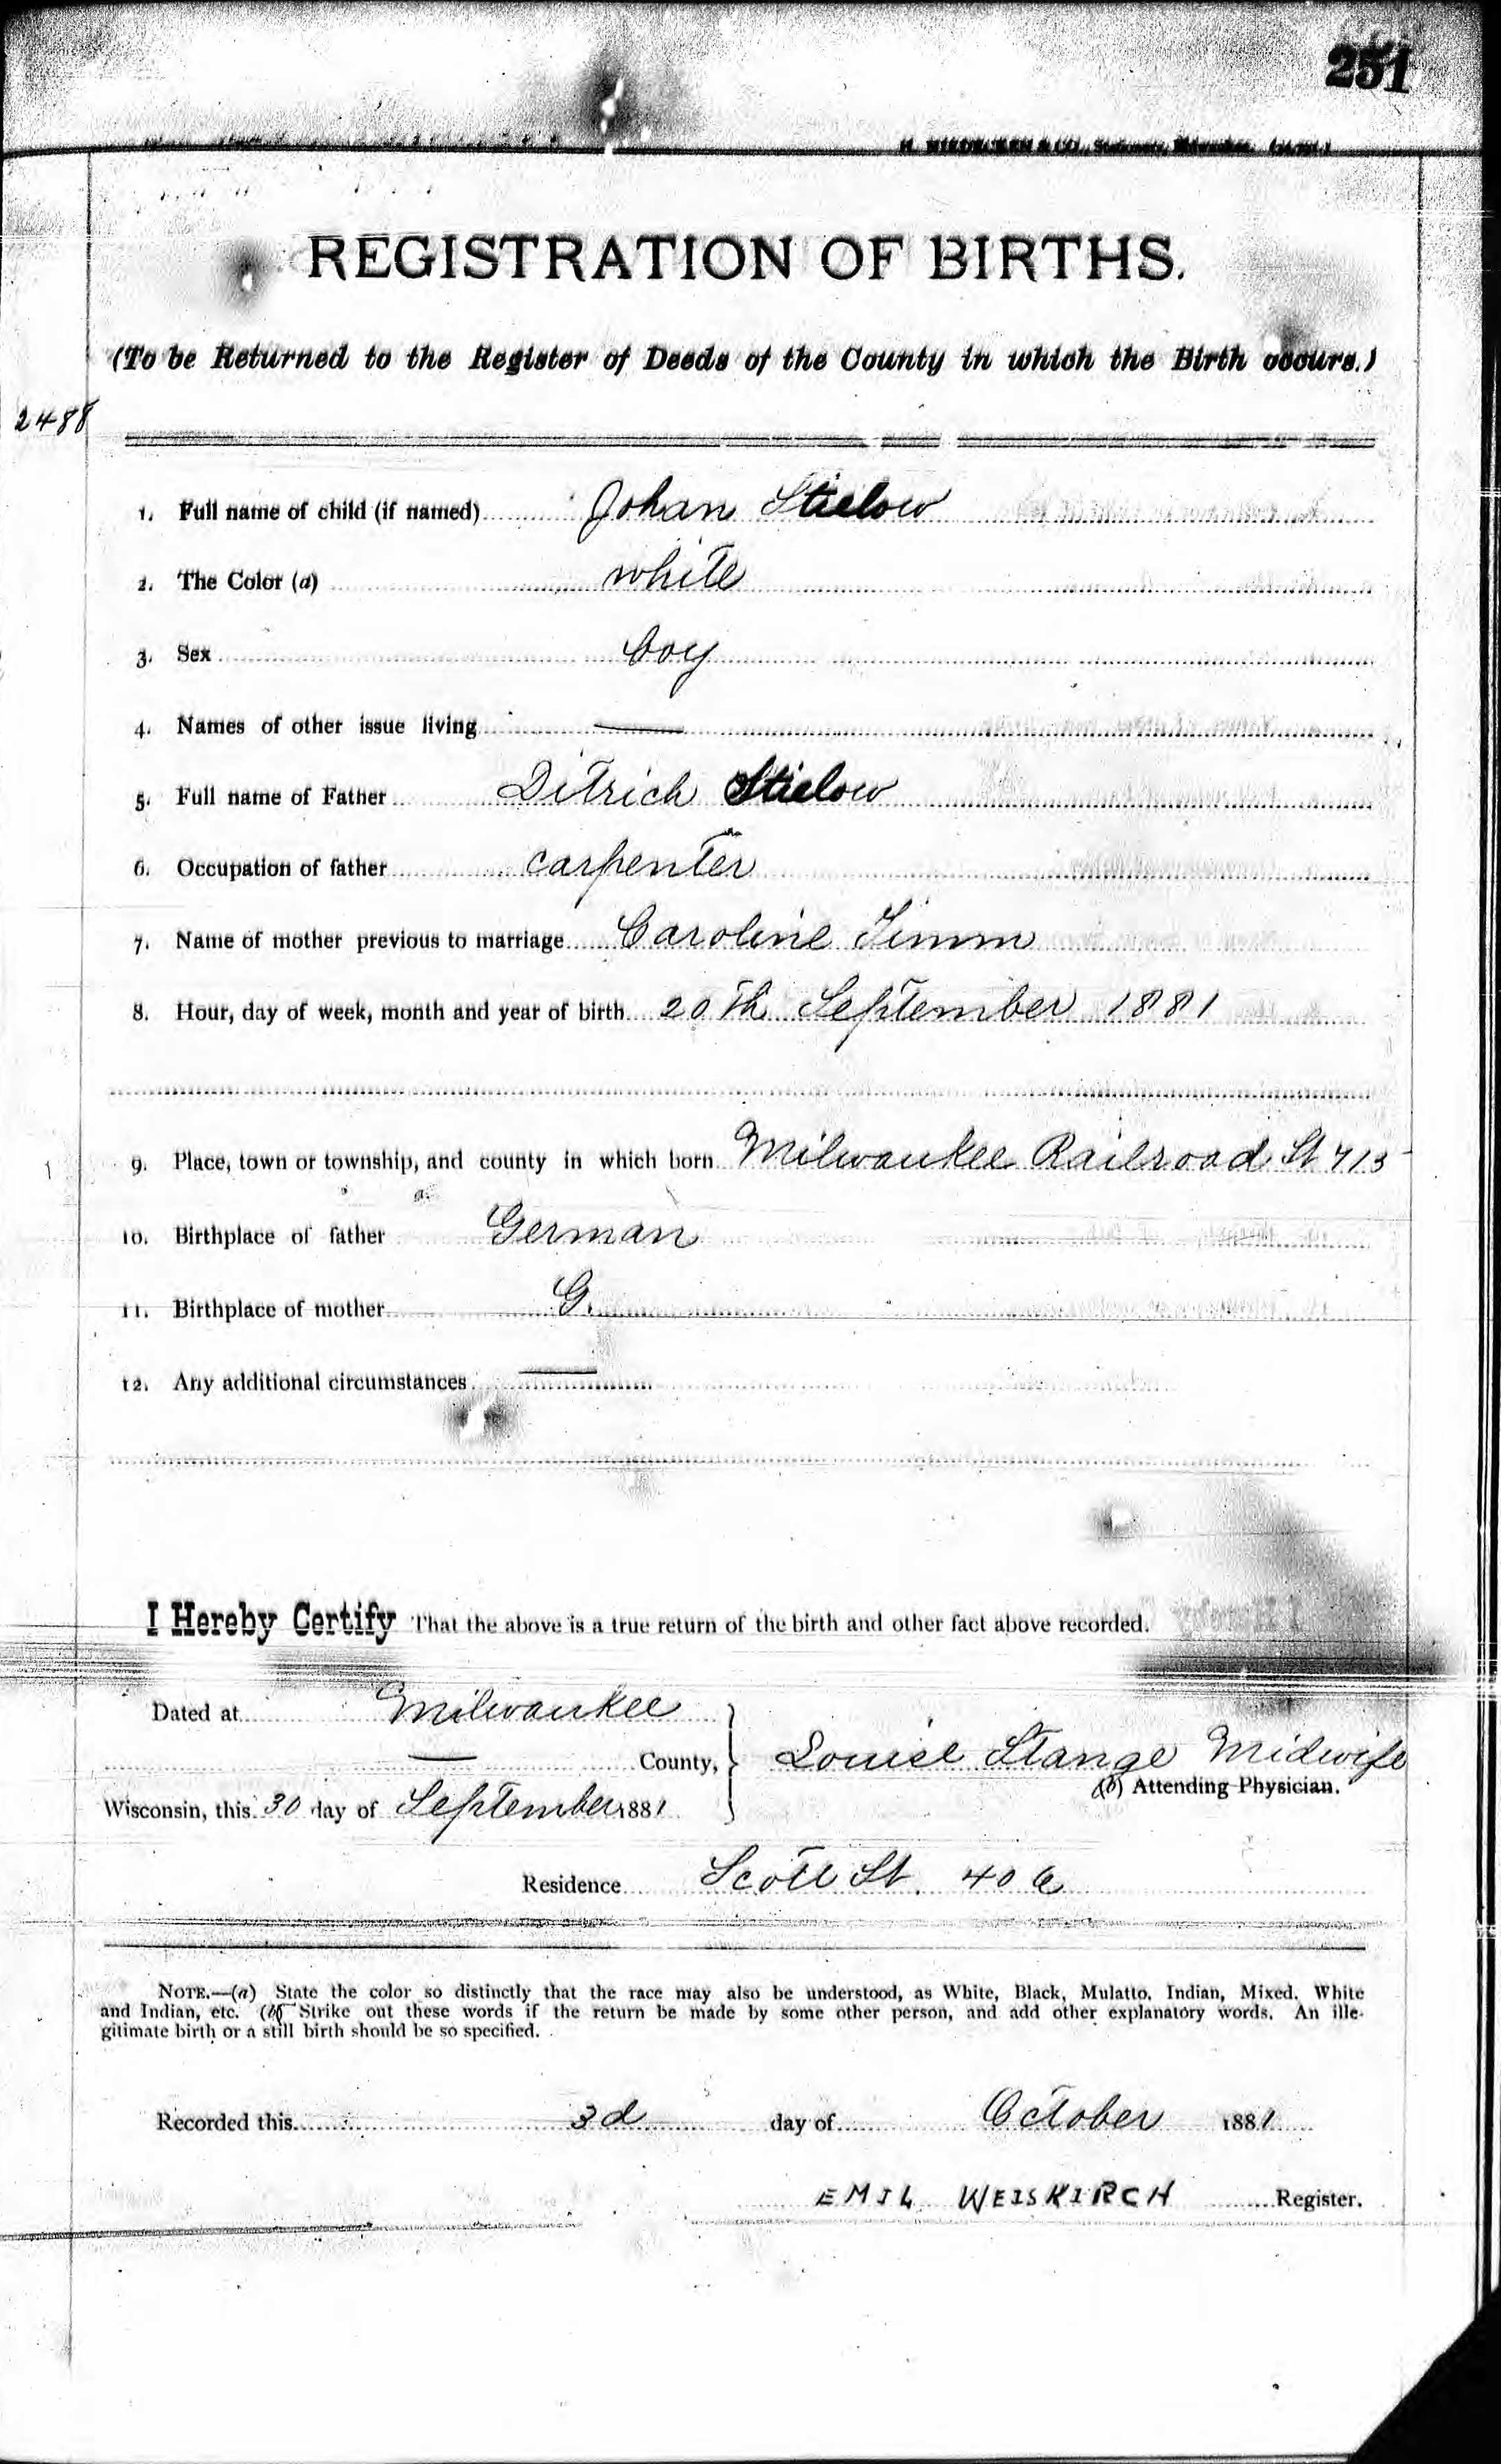 251
REGISTRATION OF BIRTHS.
(To be Returned to the Register of Deeds of the County in which the Birth occurs.)
2488
1. Full name of child (if named) Johan Stielow
2. The Color (a) white
3. Sex boy
4. Names of other issue living —
5. Full name of Father Ditrich Stielow
6. Occupation of father carpenter
7. Name of mother previous to marriage Caroline Timm
8. Hour, day of week, month and year of birth 20th September 1881
9. Place, town or township, and county in which born Milwaukee Railroad St 713
10. Birthplace of father German
11. Birthplace of mother G.
12. Any additional circumstances —
I Hereby Certify That the above is a true return of the birth and other fact above recorded.
Dated at Milwaukee
— County,
Louise Stange Midwife
(b) Attending Physician.
Wisconsin, this 30 day of September 1881
Residence Scott St. 406
NOTE.—(a) State the color so distinctly that the race may also be understood, as White, Black, Mulatto, Indian, Mixed, White
and Indian, etc. (b) Strike out these words if the return be made by some other person, and add other explanatory words. An ille-
gitimate birth or a still birth should be so specified.
Recorded this 3d day of October 1881
EMIL WEISKIRCH Register.